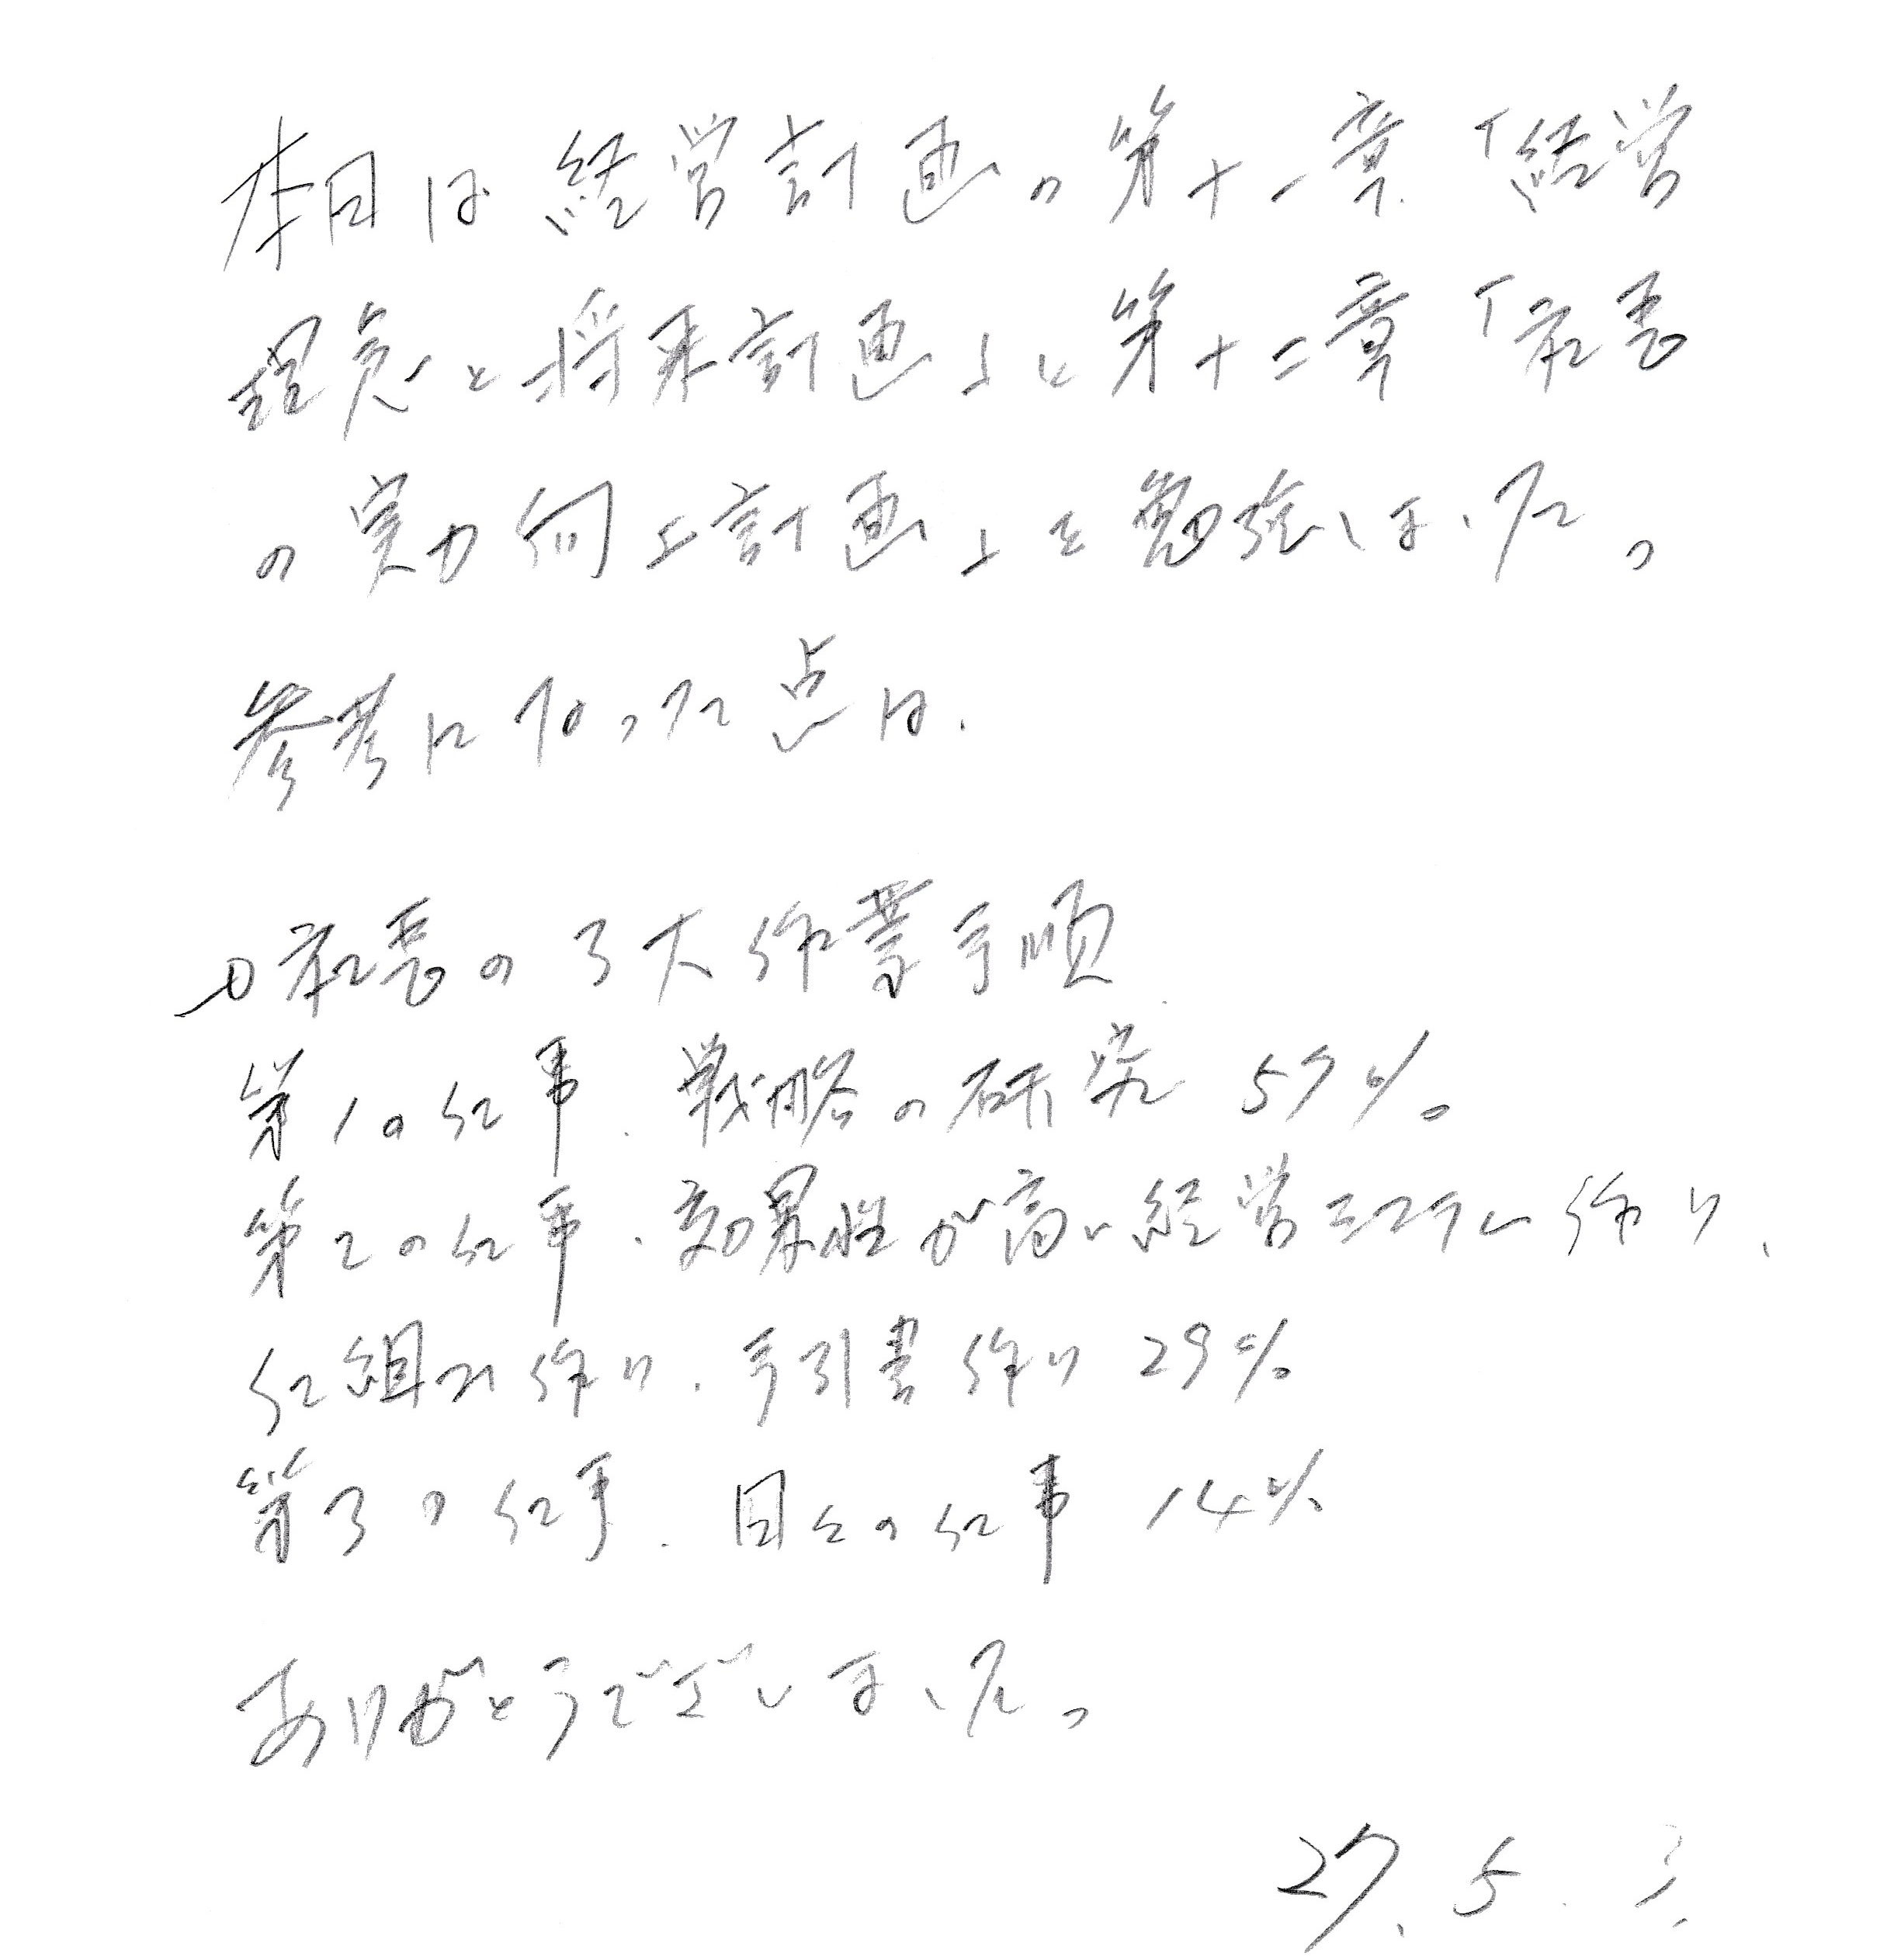 本日は経営計画の第十一章「経営
理念と将来計画」と第十二章「社長
の実力向上計画」を勉強しました。
参考になった点は、
①社長の3大作業手順
第1の仕事、戦略の研究 57%
第2の仕事、効果性が高い経営システム作り、
仕組み作り、手引書作り 29%
第3の仕事、日々の仕事 14%
ありがとうございました。
27. 5.